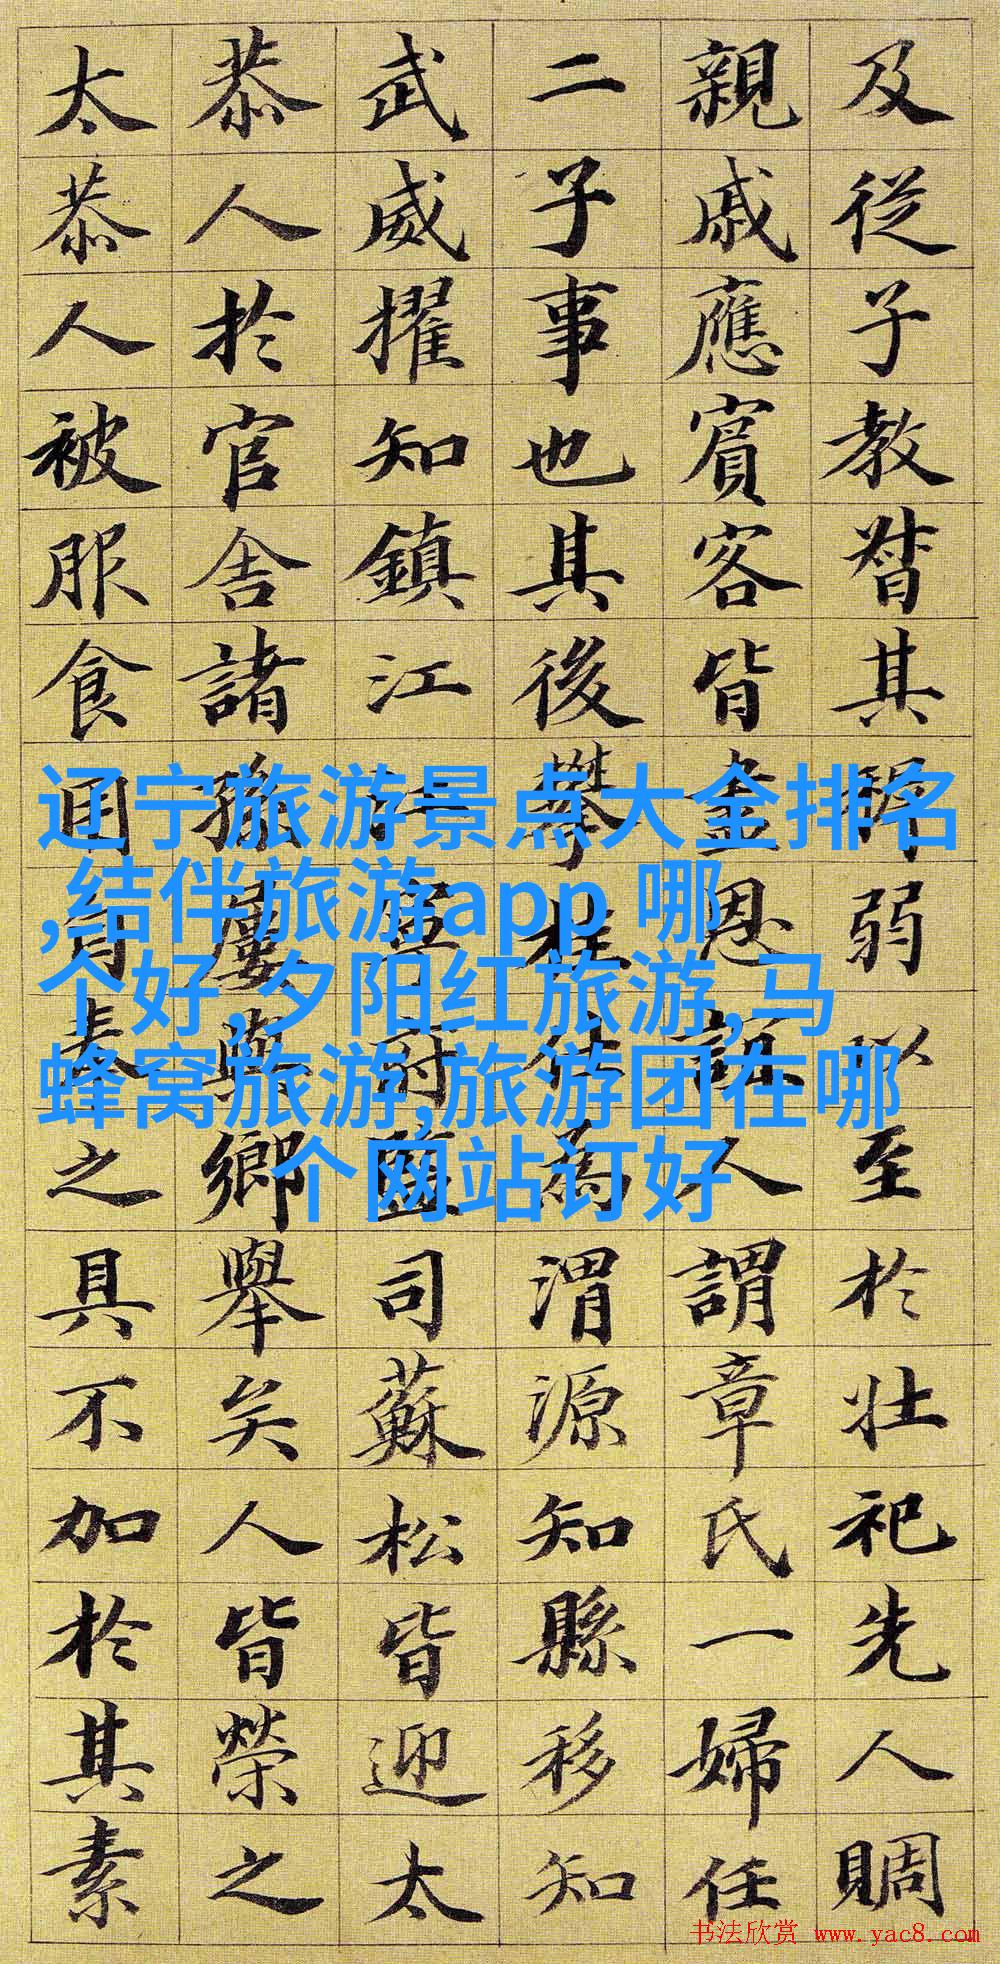 及從子教督其弱以至於壯祀先人賙
親戚應賓客皆盡恩人謂章氏一婦任
二子事也其後攀桂仕為渭源知縣移知
武威擢知鎮江司蘇松皆迎太
恭人於官舍諸孫屢與鄉舉矣人皆榮之
太恭人被服食奉之具不加於其素
辽宁旅游景点大全排名
,结伴旅游app 哪
个好,夕阳红旅游,马
蜂窝旅游,旅游团在哪
个网站订好
书法欣赏 www.yac8.com